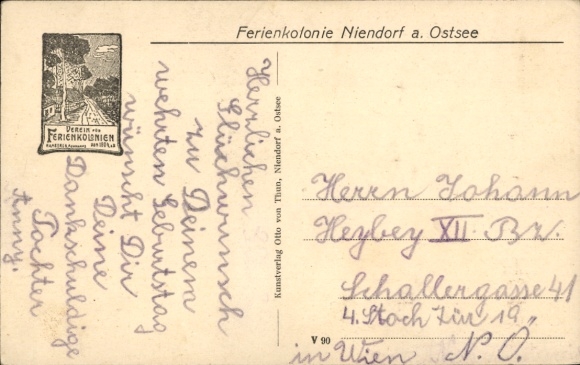 Ferienkolonie Niendorf a. Ostsee
VEREIN FÜR
FERIENKOLONIEN
Herzlichen
Glückwunsch
zu Deinem
wehrten Geburtstag
wünscht Dir
Deine
Dankschuldige
Tochter
Anny.
Kunstverlag Otto von Thun, Niendorf a. Ostsee
Herrn Johann
Heybey XII. Bz.
Schallergasse 41
4. Stoch Tür 19„
in Wien N. Ö.
V 90